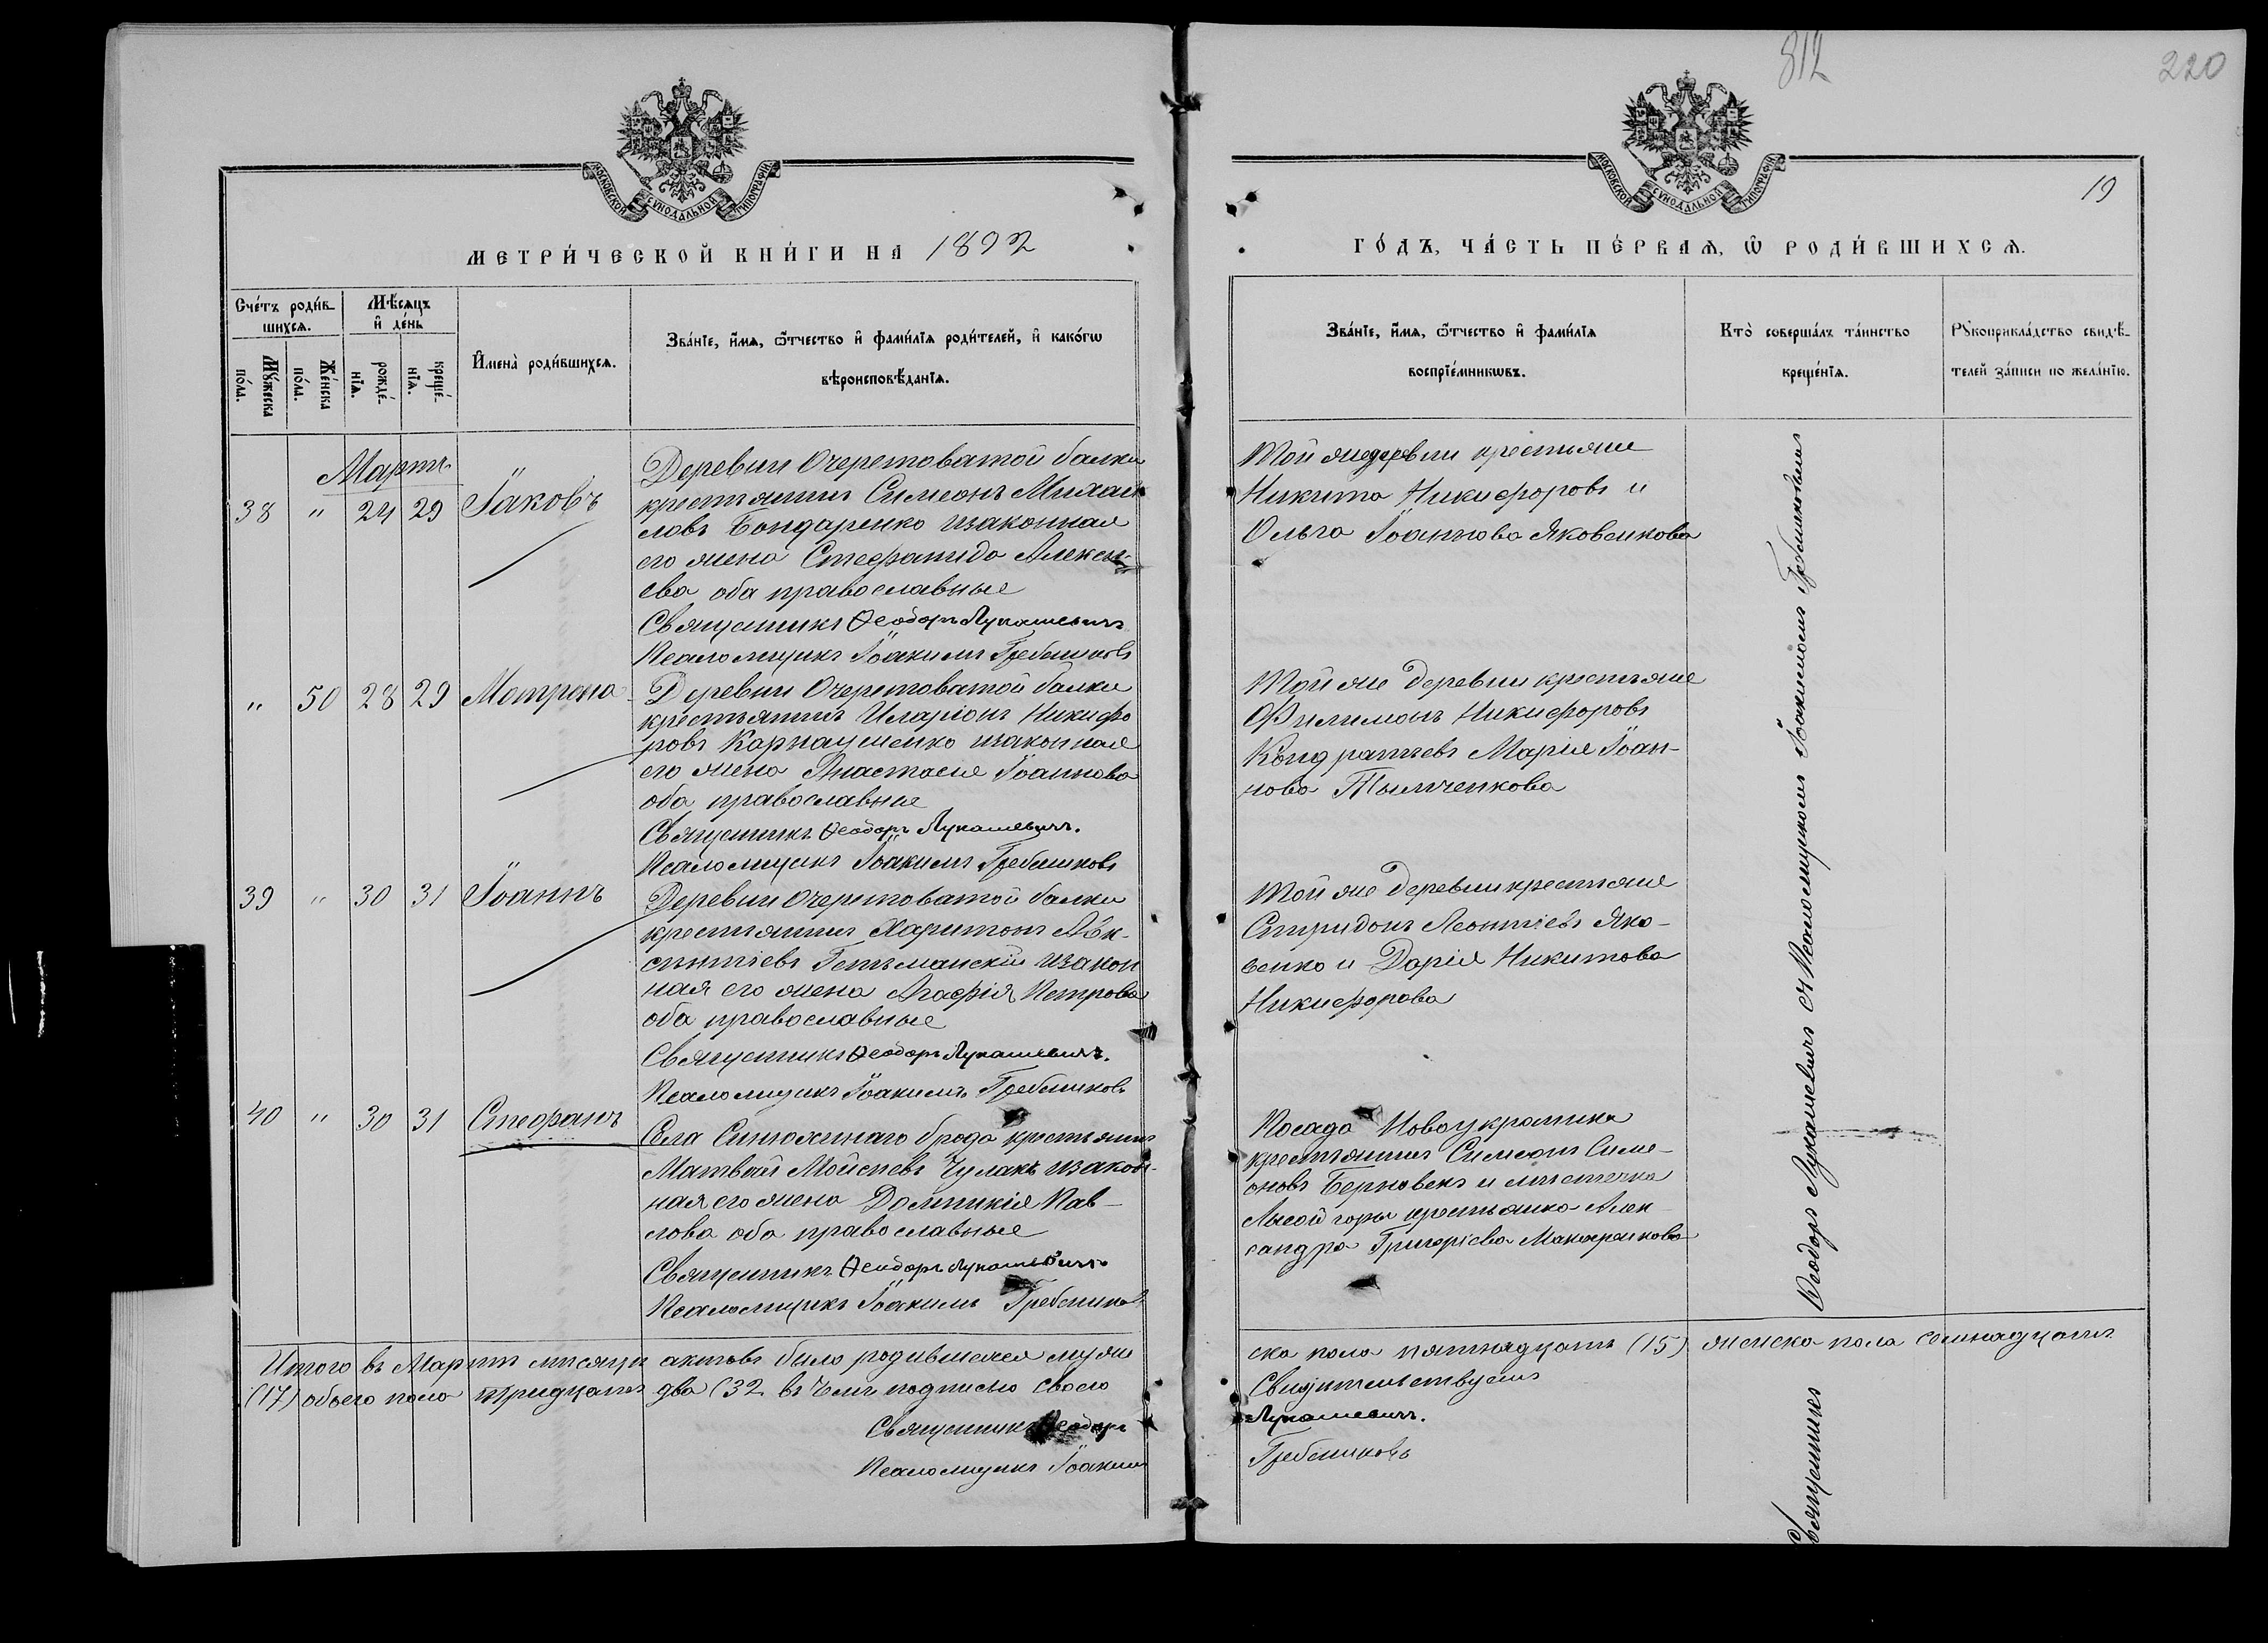 812
220
МОСКОВСКОЙ СѴНОДАЛЬНОЙ ТИПОГРАФІИ
МОСКОВСКОЙ СѴНОДАЛЬНОЙ ТИПОГРАФІИ
19
МЕТРИ́ЧЕСКОЙ КНИ́ГИ НА 1892
ГО́ДЪ, ЧА́СТЬ ПЕ́РВАЯ, Ѿ РОДИ́ВШИХСЯ.
Сче́тъ роди́в-
шихся.
Мѣ́сяцъ
и҆ де́нь
Мꙋ́жеска
по́ла.
Же́нска
по́ла.
рожде́-
нїя.
креще́-
нїя.
И҆мена̀ роди́вшихся.
Зва́нїе, и҆́мя, ѻ҆́тчество и҆ фами́лїя роди́телей, и҆ како́гѡ
вѣроисповѣ́данїя.
Зва́нїе, и҆́мя, ѻ҆́тчество и҆ фами́лїя
воспрїе́мникѡвъ.
Кто̀ соверша́лъ та́инство
креще́нїя.
Рꙋкоприкла́дство свидѣ́-
телей за́писи по жела́нїю.
Мартъ
38 " 24 29 Іаковъ
Деревни Очеретоватой балки
крестьянинъ Симеонъ Михаи
ловъ Бондаренко изаконная
его жена Стефанида Алексѣ-
ева оба православные
Священникъ Ѳеодоръ Лукашевичъ
Псаломщикъ Іоакимъ Гребенниковъ
Той жедеревни крестьяне
Никита Никифоровъ и
Ольга Іоаннова Яковенкова
" 50 28 29 Матрона
Деревни Очеретоватой балки
крестьянинъ Иларіонъ Никифо
ровъ Карнаушенко изаконная
его жена Анастасія Іоаннова
оба православные
Священникъ Ѳеодоръ Лукашевичъ.
Псаломщикъ Іоакимъ Гребенниковъ
Той же деревни крестьяне
Филимонъ Никифоровъ
Кондратьевъ Марія Іоан-
нова Тымченкова
39 " 30 31 Іоаннъ
Деревни Очеретоватой балки
крестьянинъ Харитонъ Авк-
сентіевъ Гетьманскій изакон
ная его жена Агафія Петрова
оба православные
Священникъ Ѳеодоръ Лукашевичъ.
Псаломщикъ Іоакимъ Гребенниковъ
Той же деревни крестьяне
Спиридонъ Леонтіевъ Яко-
венко и Дарія Никитова
Никифорова
40 " 30 31 Стефанъ
Села Синюхинаго брода крестьянинъ
Матвѣй Мойсеевъ Чулакъ изакон-
ная его жена Домникія Пав-
лова оба православные
Священникъ Ѳеодоръ Лукашевичъ
Псаломщикъ Іоакимъ Гребенников
Посада Новоукраинка
крестьянинъ Симеонъ Симе-
оновъ и мѣстечка
Лысой горы крестьянка Алек
сандра Григоріева
Священникъ Ѳеодоръ Лукашевичъ съ Псаломщикомъ Іоакимомъ Гребенниковымъ
Итого въ Мартѣ мѣсяцѣ актовъ было родившихся муже
ска пола пятнадцать (15) женска пола семнадцать
(17) обоего пола тридцать два (32 въ чемъ подписью своею
Свидѣтельствуемъ
Священникъ Ѳеодоръ
Лукашевичъ.
Псаломщикъ Іоакимъ
Гребенниковъ